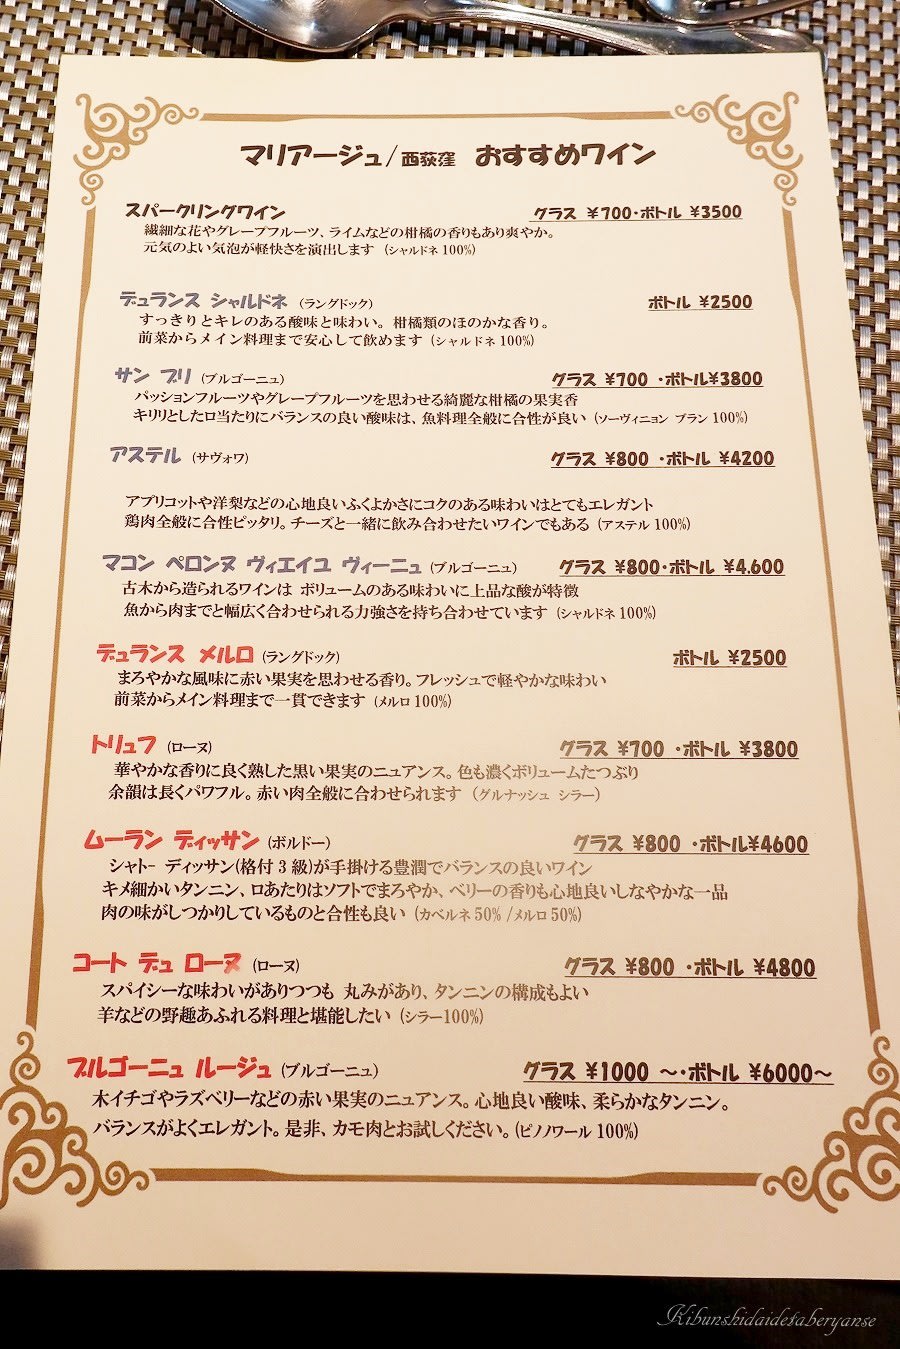 マリアージュ/西荻窪 おすすめワイン
スパークリングワイン グラス ¥700・ボトル ¥3500
繊細な花やグレープフルーツ、ライムなどの柑橘の香りもあり爽やか。
元気のよい気泡が軽快さを演出します (シャルドネ 100%)
デュランス シャルドネ (ラングドック) ボトル ¥2500
すっきりとキレのある酸味と味わい。柑橘類のほのかな香り。
前菜からメイン料理まで安心して飲めます (シャルドネ 100%)
サン ブリ (ブルゴーニュ) グラス ¥700 ・ボトル¥3800
パッションフルーツやグレープフルーツを思わせる綺麗な柑橘の果実香
キリリとした口当たりにバランスの良い酸味は、魚料理全般に合性が良い (ソーヴィニョン ブラン 100%)
アステル (サヴォワ) グラス ¥800 ・ボトル ¥4200
アプリコットや洋梨などの心地良いふくよかさにコクのある味わいはとてもエレガント
鶏肉全般に合性ピッタリ。チーズと一緒に飲み合わせたいワインでもある (アステル 100%)
マコン ペロンヌ ヴィエイユ ヴィーニュ (ブルゴーニュ) グラス ¥800・ボトル ¥4.600
古木から造られるワインは ボリュームのある味わいに上品な酸が特徴
魚から肉までと幅広く合わせられる力強さを持ち合わせています (シャルドネ 100%)
デュランス メルロ (ラングドック) ボトル ¥2500
まろやかな風味に赤い果実を思わせる香り。フレッシュで軽やかな味わい
前菜からメイン料理まで一貫できます (メルロ 100%)
トリュフ (ローヌ) グラス ¥700 ・ボトル ¥3800
華やかな香りに良く熟した黒い果実のニュアンス。色も濃くボリュームたっぷり
余韻は長くパワフル。赤い肉全般に合わせられます (グルナッシュ シラー)
ムーラン ディッサン (ボルドー) グラス ¥800 ・ボトル¥4600
シャトー ディッサン(格付 3 級)が手掛ける豊潤でバランスの良いワイン
キメ細かいタンニン、口あたりはソフトでまろやか、ベリーの香りも心地良いしなやかな一品
肉の味がしつかりしているものと合性も良い (カベルネ 50% /メルロ 50%)
コート デュ ローヌ (ローヌ) グラス ¥800 ・ボトル ¥4800
スパイシーな味わいがありつつも 丸みがあり、タンニンの構成もよい
羊などの野趣あふれる料理と堪能したい (シラー100%)
ブルゴーニュ ルージュ (ブルゴーニュ) グラス ¥1000 ～・ボトル ¥6000～
木イチゴやラズベリーなどの赤い果実のニュアンス。心地良い酸味、柔らかなタンニン。
バランスがよくエレガント。是非、カモ肉とお試しください。(ピノノワール 100%)
Kibunshidaidetaberyanse